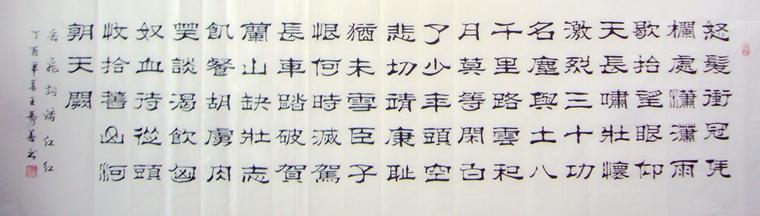 怒髮衝冠凭
欄處瀟瀟雨
歇抬望眼仰
天長嘯壯懷
激烈三十功
名塵與土八
千里路雲和
月莫等閑白
了少年頭空
悲切靖康恥
猶未雪臣子
恨何時滅駕
長車踏破賀
蘭山缺壯志
飢餐胡虜肉
笑談渴飲匈
奴血待從頭
收拾舊山河
朝天闕
岳飛詞滿江紅
丁酉年春王